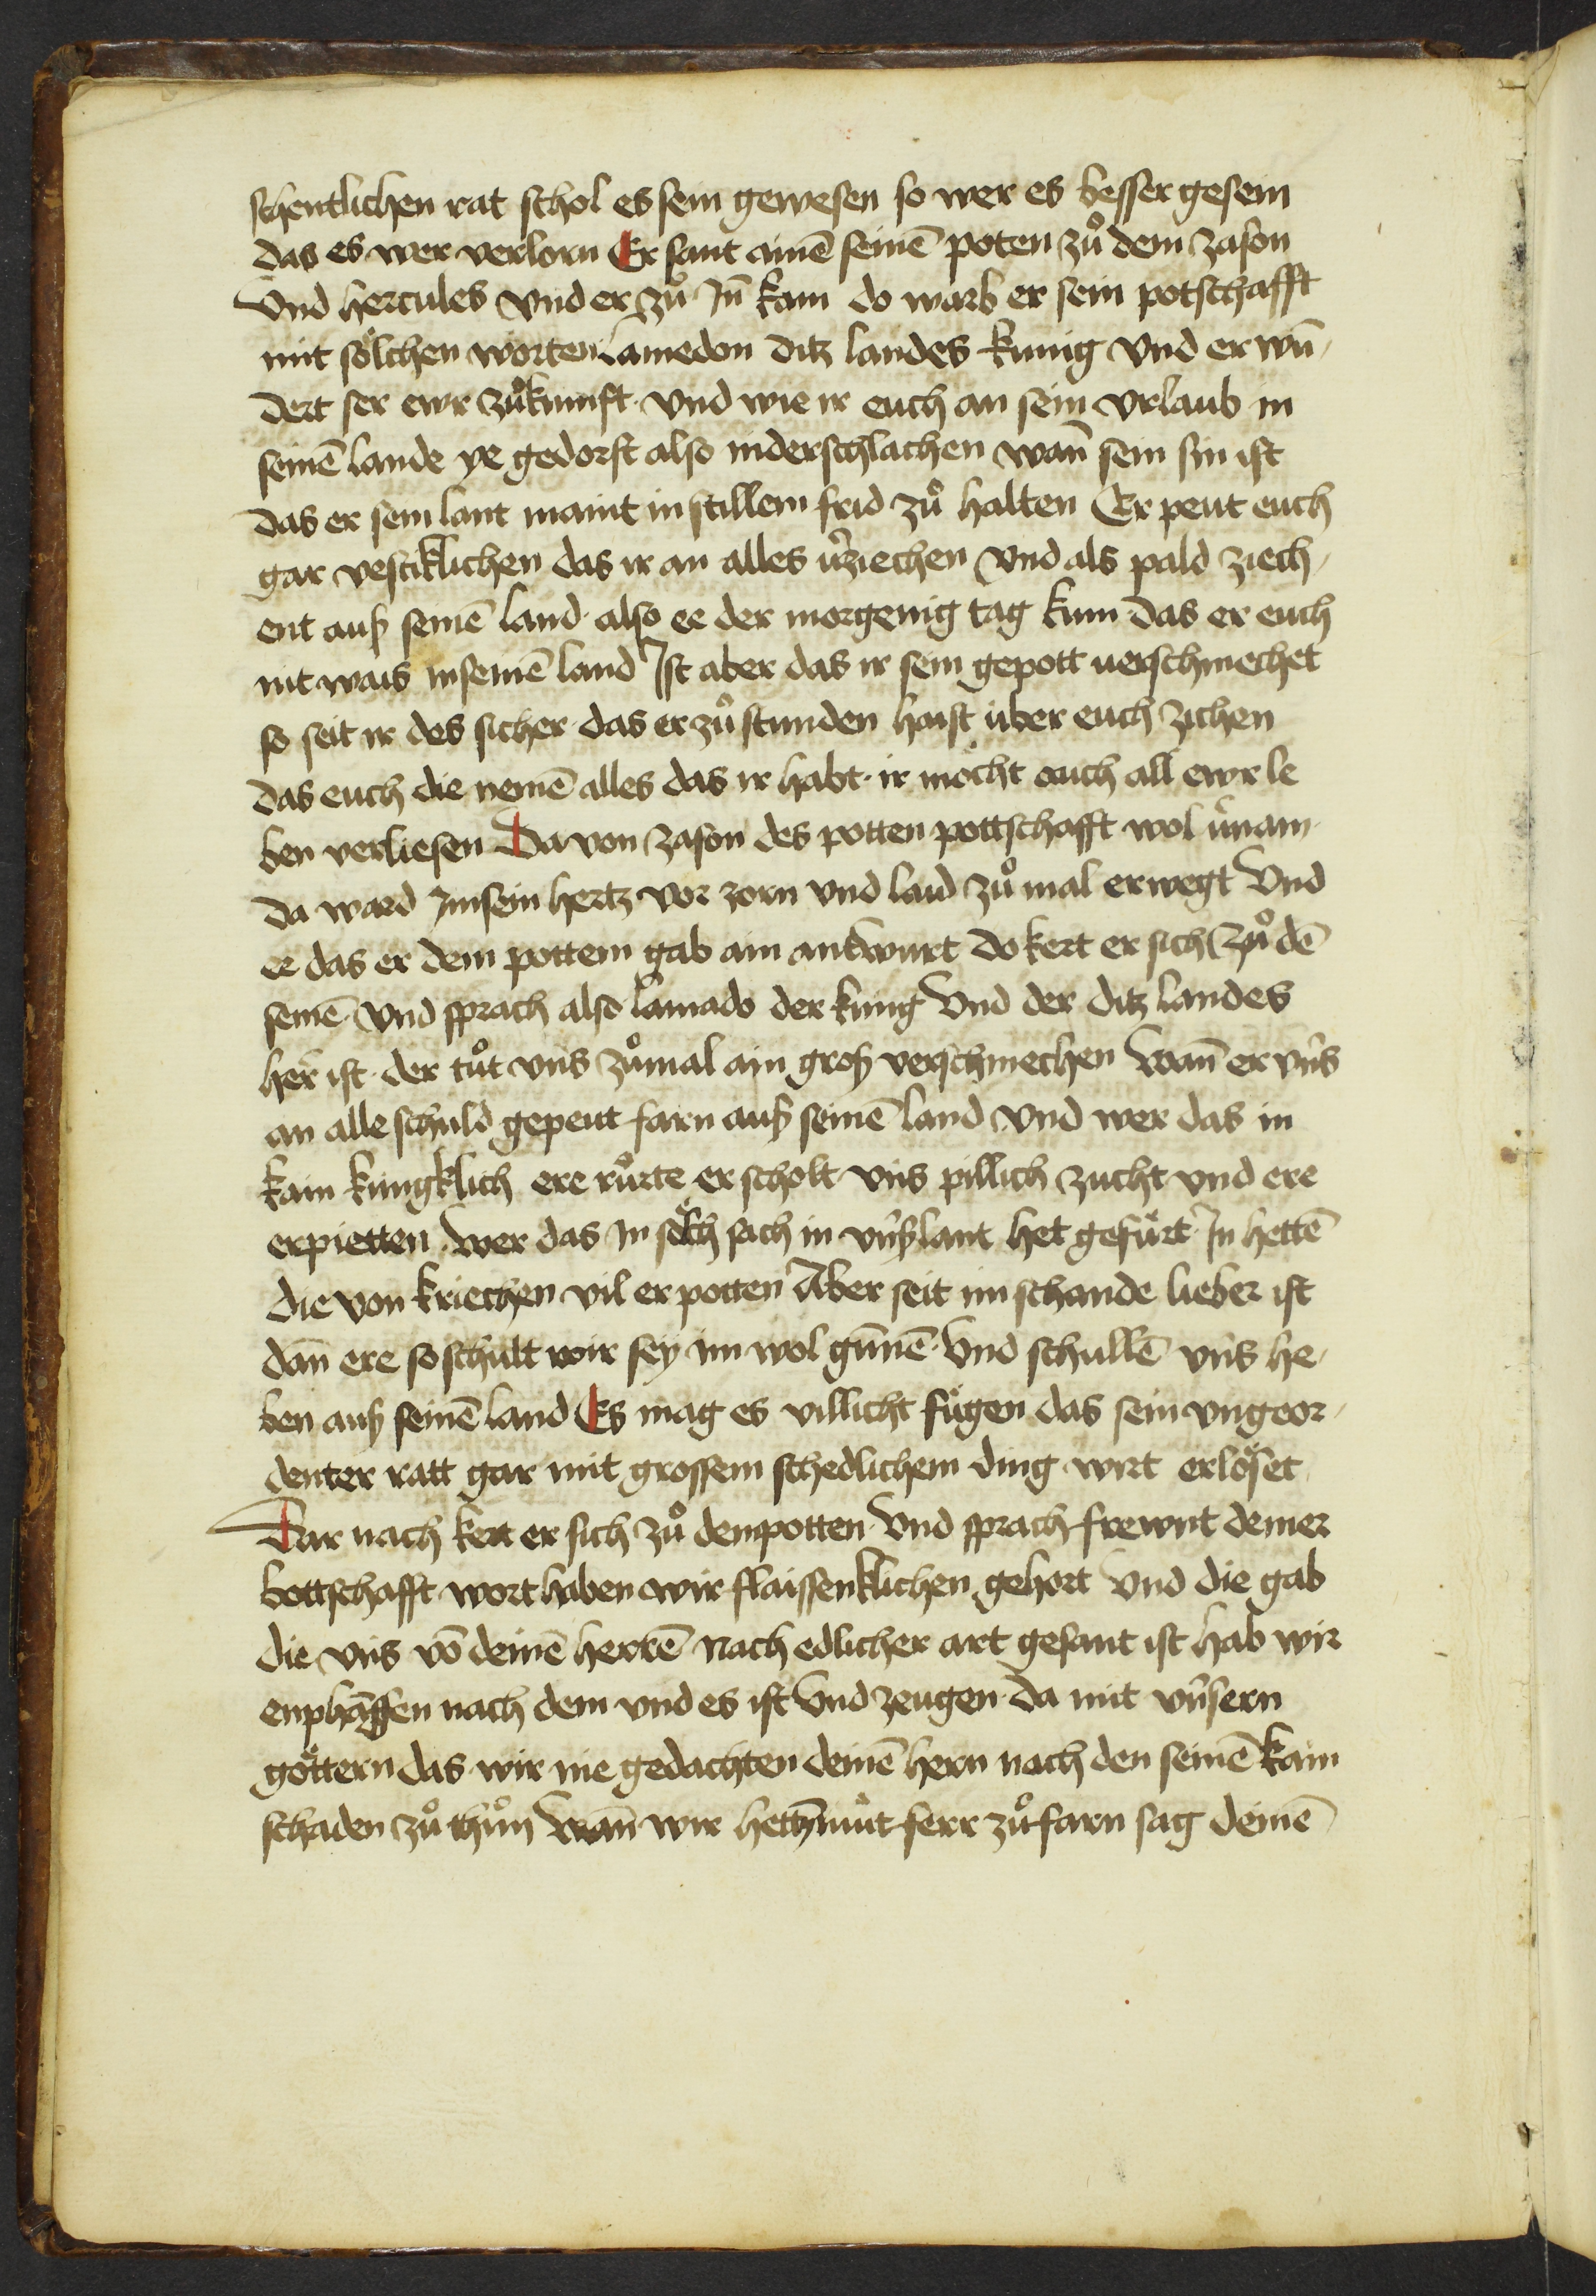 schentlichen rat schol es sein gewesen so wer es besser gesein
das es wer verlorn Er sant ainē seinē poten zuͦ dem zason
Vnd hercules vnd er zuͦ Jn̄ kam do warb er sein potschafft
mit soͤlchen worten lamedon ditz landes kunig vnd er wū
dert ser ewr zuͦkunft · vnd wie ir euch an sein vrlaub in
seinē lande ye gedorst also niderschlachen wan̄ sein sin ist
das er sein lant maint in stillem frid zuͦ halten Er peut euch
gar vestiklichen das ir an alles v̾ziechen vnd als pald ziech
ent auß seinē land · also ee der morgenig tag kum das er euch
nit wais in seinē land Ist aber das ir sein gepott uerschmechet
so seit ir des sicher · das er zuͦ stunden haist uͤber euch zichen
das euch die nemē alles das ir habt · ir moͤcht auch all ewr le
ben verliesen Da von zason des potten pottschafft wol v̾nam
da ward Jm sein hertz vor zorn vnd laid zuͦ mal erwegt Vnd
ee das er dem pottem gab ain antwurt do kert er sich zuͦ dē
seinē vnd sprach also lamado der kung Vnd der ditz landes
her ist · der tuͦt vns zuͦmal ain groß verschmechen Wan̄ er vns
an alle schuld gepeut farn auß seinē land vnd wer das in
kain kungklich ere ruͦrte er scholt vns pillich zucht vnd ere
erpietten wer das in soͤlch sach in vnßlant het gefuͤrt In hettē
die von kriechen vil erpotten Aber seit im schande lieber ist
dan̄ ere so schult wir sey im wol gūnē · Vnd schullē vns he
ben auß seinē land Es mag es villicht fuͤgen das sein vngeor
denter ratt gar mit grossem schedlichem ding wirt erloͤset
Dar nach kert er sich zuͦ dem potten Vnd sprach frewnt deiner
bottschafft wort haben wir flaissenklichen gehort Vnd die gab
die vns vō deinē herrē nach edlicher art gesant ist hab wir
enphāgen nach dem vnd es ist Vnd zeugen da mit vnsern
goͤttern das wir nie gedachten deinē hern nach den seinē kain
schaden zuͦ thuͦn Wan̄ wir hettn̄ muͦt ferr zuͦ farn sag deinē